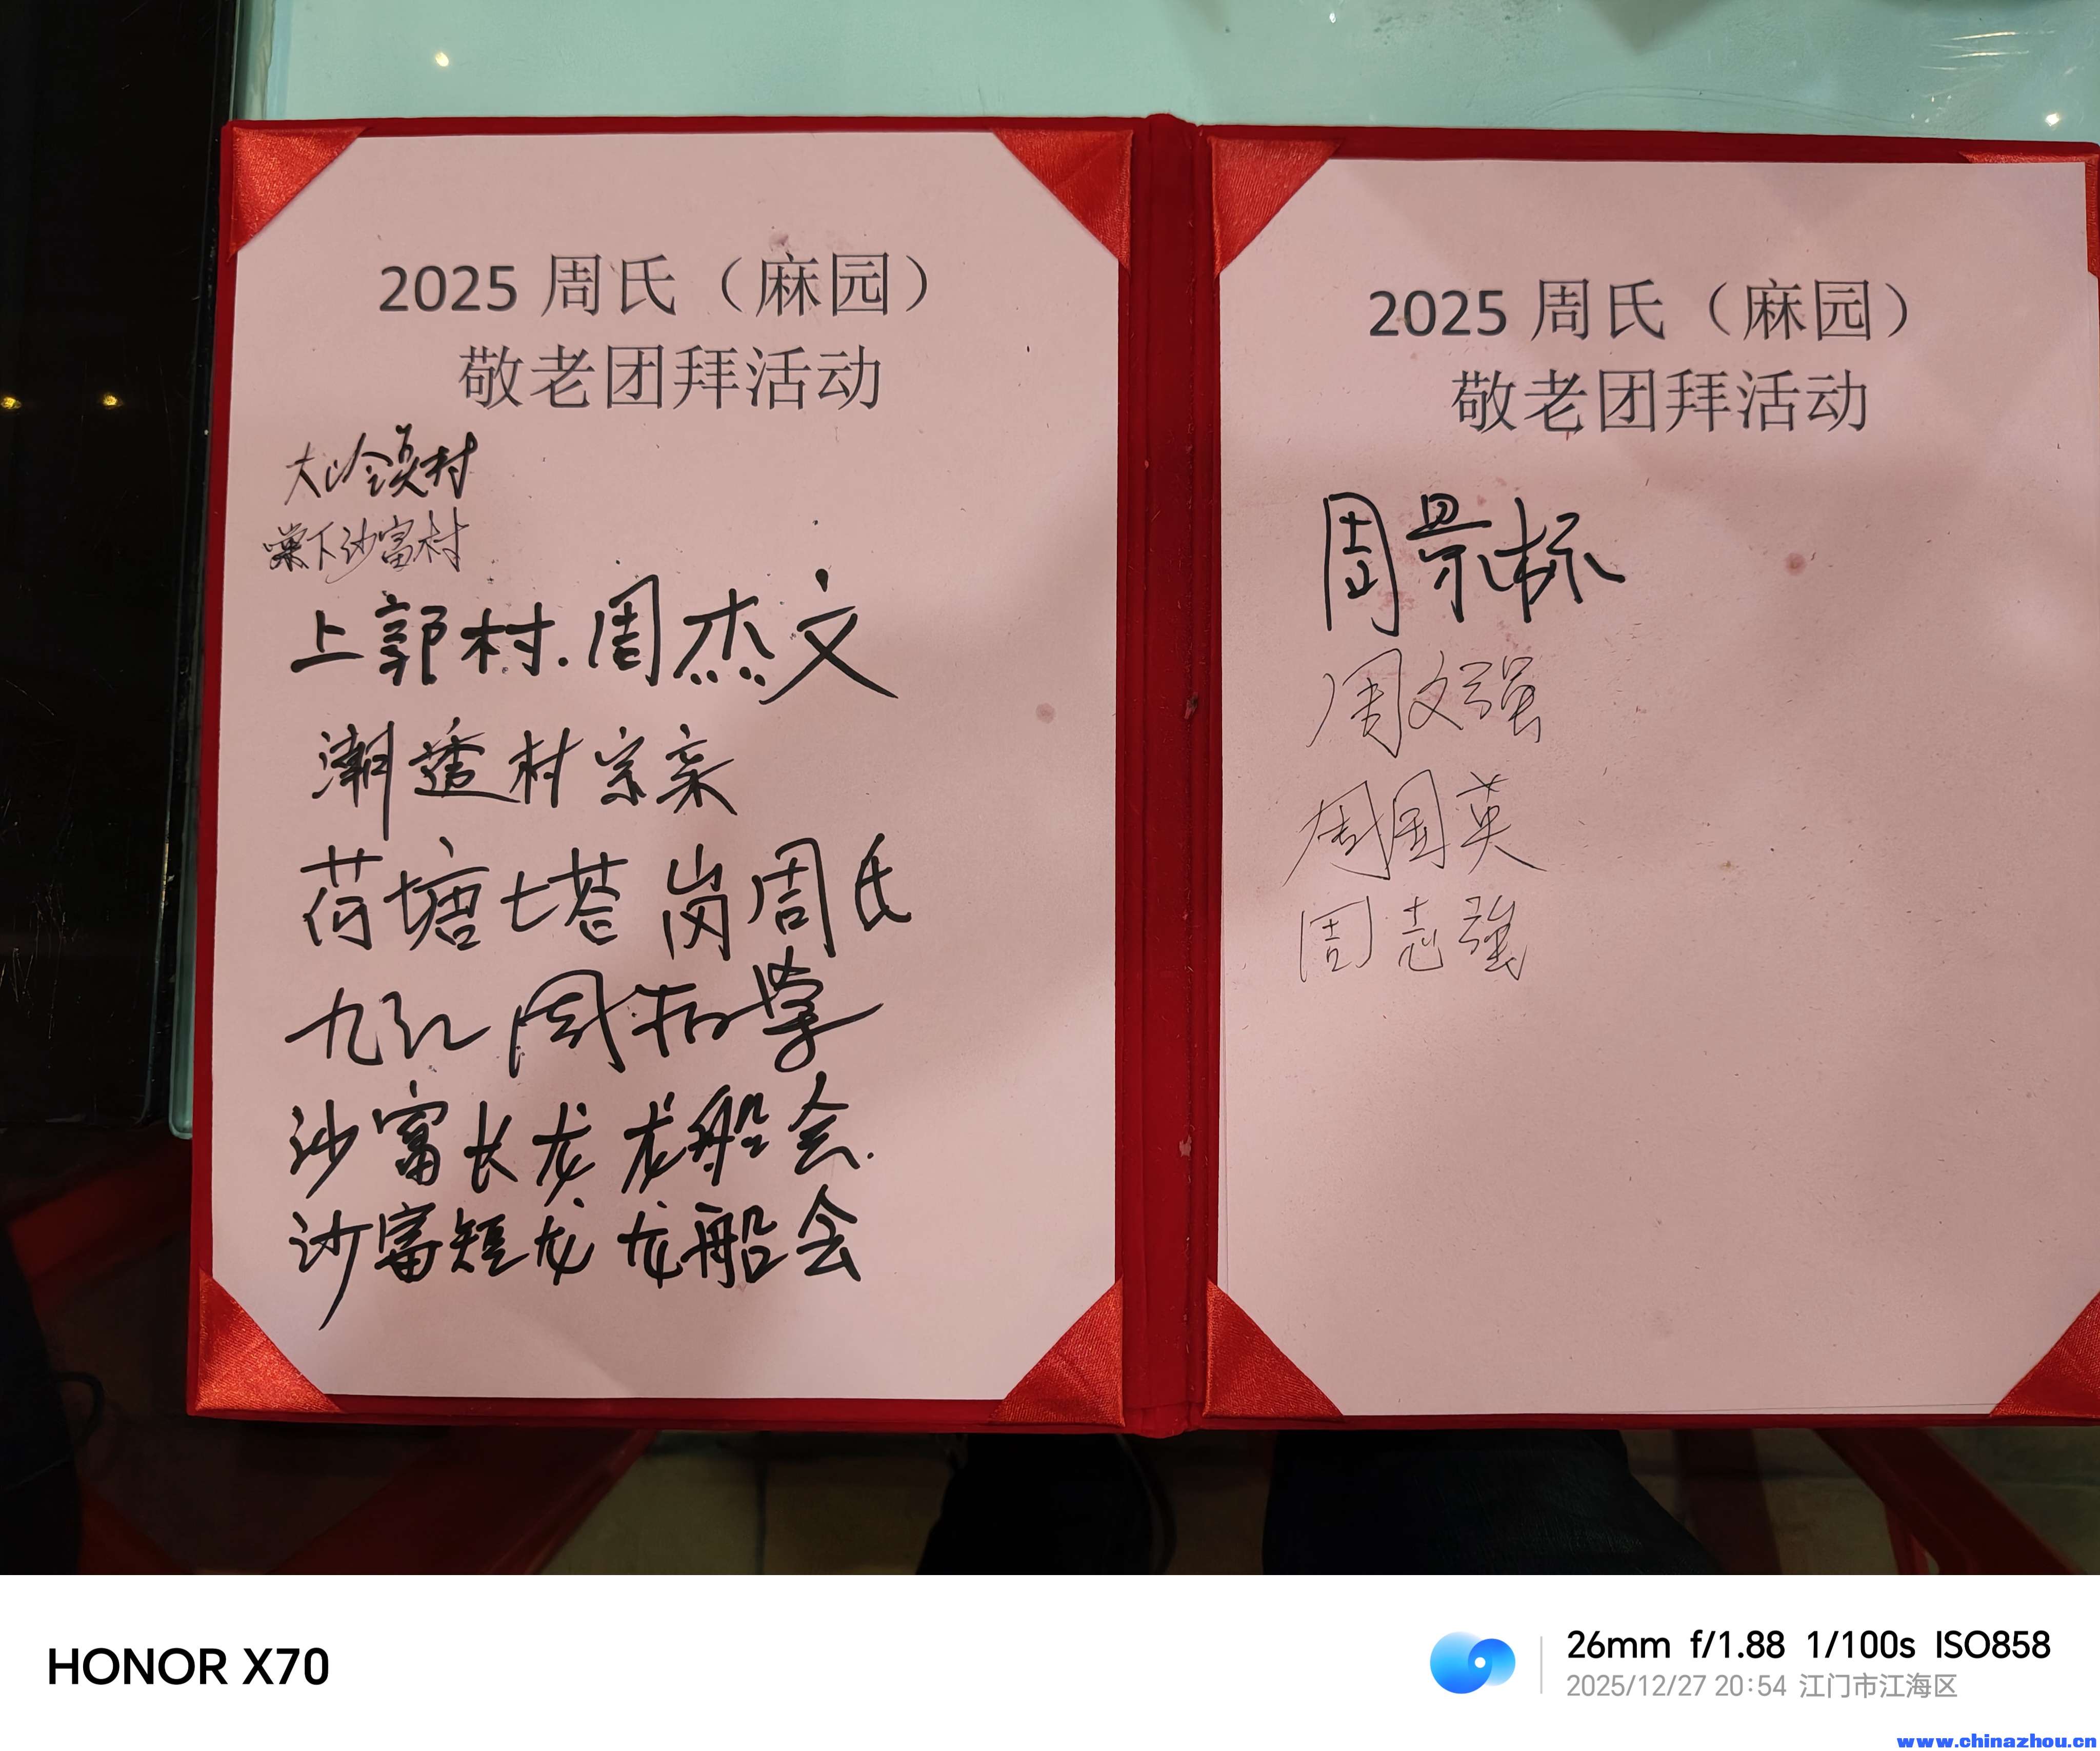 2025 周氏（麻园）
敬老团拜活动
大岭𡌶村
棠下沙富村
上郭村.周杰文
潮莲村宗亲
荷塘七塔岗周氏
九江 周柏
沙富长龙龙船会.
沙富短龙龙船会
2025 周氏（麻园）
敬老团拜活动
周景标
周文强
周国英
周志强
HONOR X70
26mm f/1.88 1/100s ISO858
2025/12/27 20:54 江门市江海区
www.chinazhou.cn